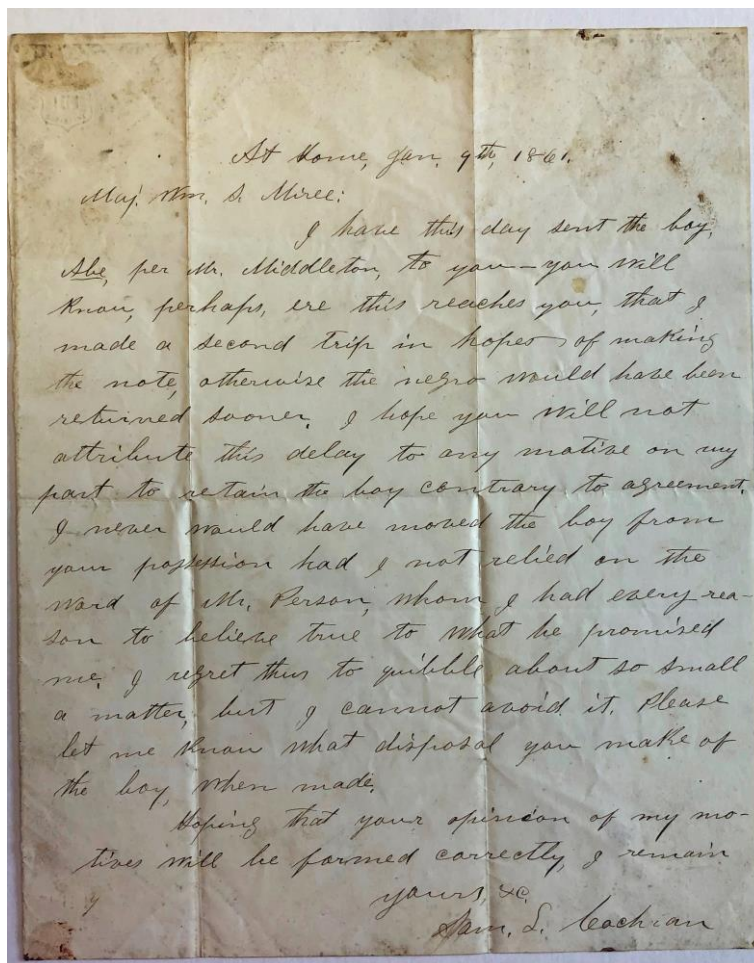 At Home, Jan. 9th, 1861.
Maj. Wm. S. Miree:
I have this day sent the boy,
Abe, per Mr. Middleton, to you—you will
know, perhaps, ere this reaches you, that I
made a second trip in hopes of making
the note, otherwise the negro would have been
returned sooner. I hope you will not
attribute this delay to any motive on my
part to retain the boy contrary to agreement.
I never would have moved the boy from
your possession had I not relied on the
word of Mr. Person, whom I had every rea-
son to believe true to what he promised
me. I regret thus to quibble about so small
a matter, but I cannot avoid it. Please
let me know what disposal you make of
the boy, when made.
Hoping that your opinion of my mo-
tives will be formed correctly, I remain
yours, &c.
Sam. L. Cochran